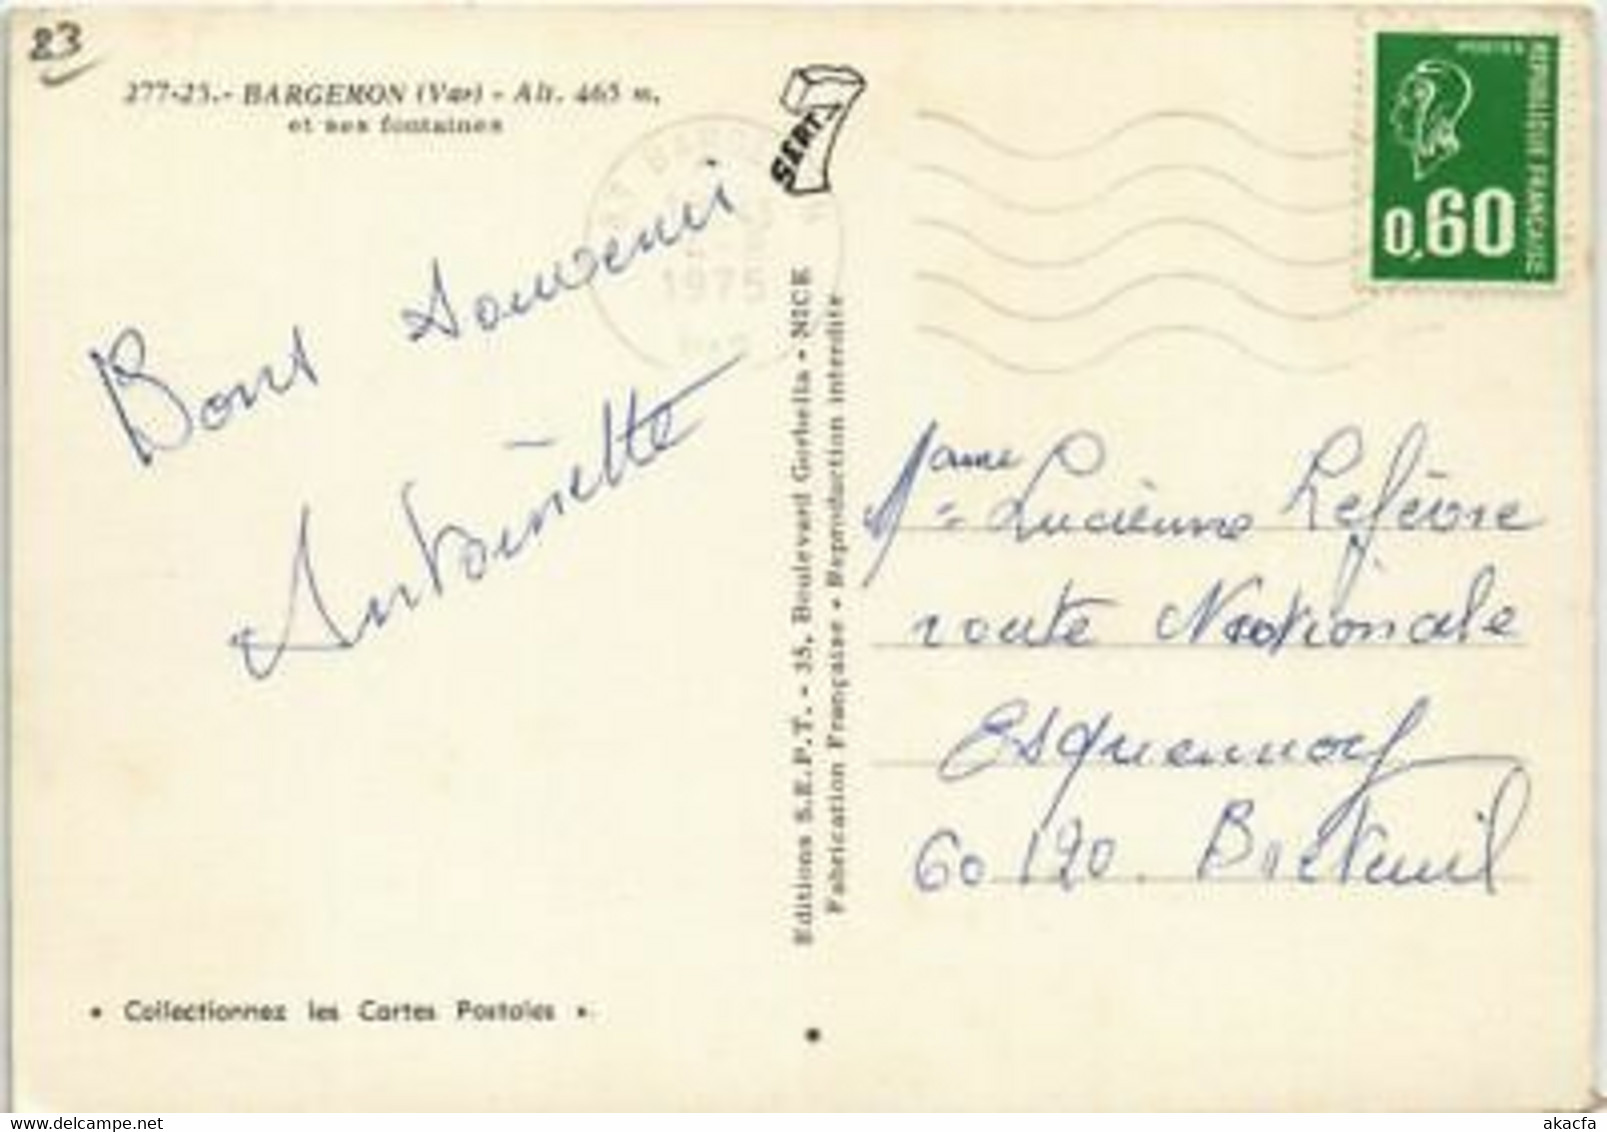 83
277-25.- BARGEMON (Var) - Alt. 465 m.
et ses fontaines
SEPT
1975
POSTES
REPUBLIQUE FRANÇAISE
0,60
Bons Souvenirs
Antoinette
Editions S.E.P.T. - 35, Boulevard Gorbella - NICE
Fabrication Française - Reproduction interdite
Mame Lucienne Lefèvre
route Nationale
Esquennoy
60120. Breteuil
• Collectionnez les Cartes Postales •
akacfa